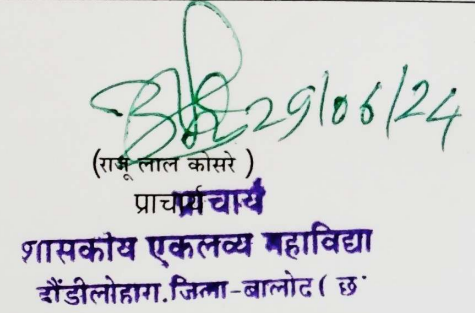 29/06/24
(राजू लाल कोसरे )
प्राचार्य
प्राचार्य
शासकीय एकलव्य महाविद्या
डौंडीलोहारा.जिला-बालोद ( छ